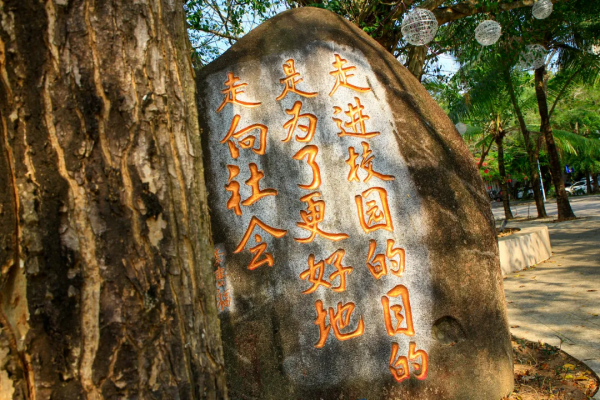 走进校园的目的
是为了更好地
走向社会